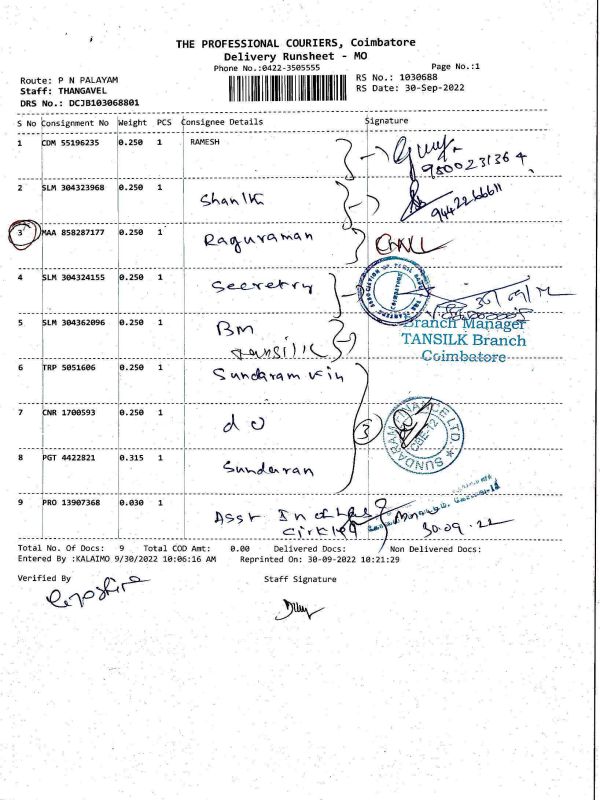 THE PROFESSIONAL COURIERS, Coimbatore
Delivery Runsheet - MO
Phone No.:0422-3505555
Page No.:1
Route: P N PALAYAM
RS No.: 1030688
Staff: THANGAVEL
RS Date: 30-Sep-2022
DRS No.: DCJB103068801
S No Consignment No Weight PCS Consignee Details Signature
1 CDM 55196235 0.250 1 RAMESH
9800231364
2 SLM 304323968 0.250 1 Shanlk
9442266611
3 MAA 858287177 0.250 1 Raguraman
4 SLM 304324155 0.250 1 Secretry
30/09/22
5 SLM 304362096 0.250 1 BM
Tansilk
Branch Manager
TANSILK Branch
Coimbatore
6 TRP 5051606 0.250 1 Sundaram Kin
7 CNR 1700593 0.250 1 do
3
SUNDARAM FINANCE LTD.
CBE-12
8 PGT 4422821 0.315 1 Sundaran
9 PRO 13907368 0.030 1 Asst
30.09.22
Total No. Of Docs: 9 Total COD Amt: 0.00 Delivered Docs: Non Delivered Docs:
Entered By :KALAIMO 9/30/2022 10:06:16 AM Reprinted On: 30-09-2022 10:21:29
Verified By
Staff Signature